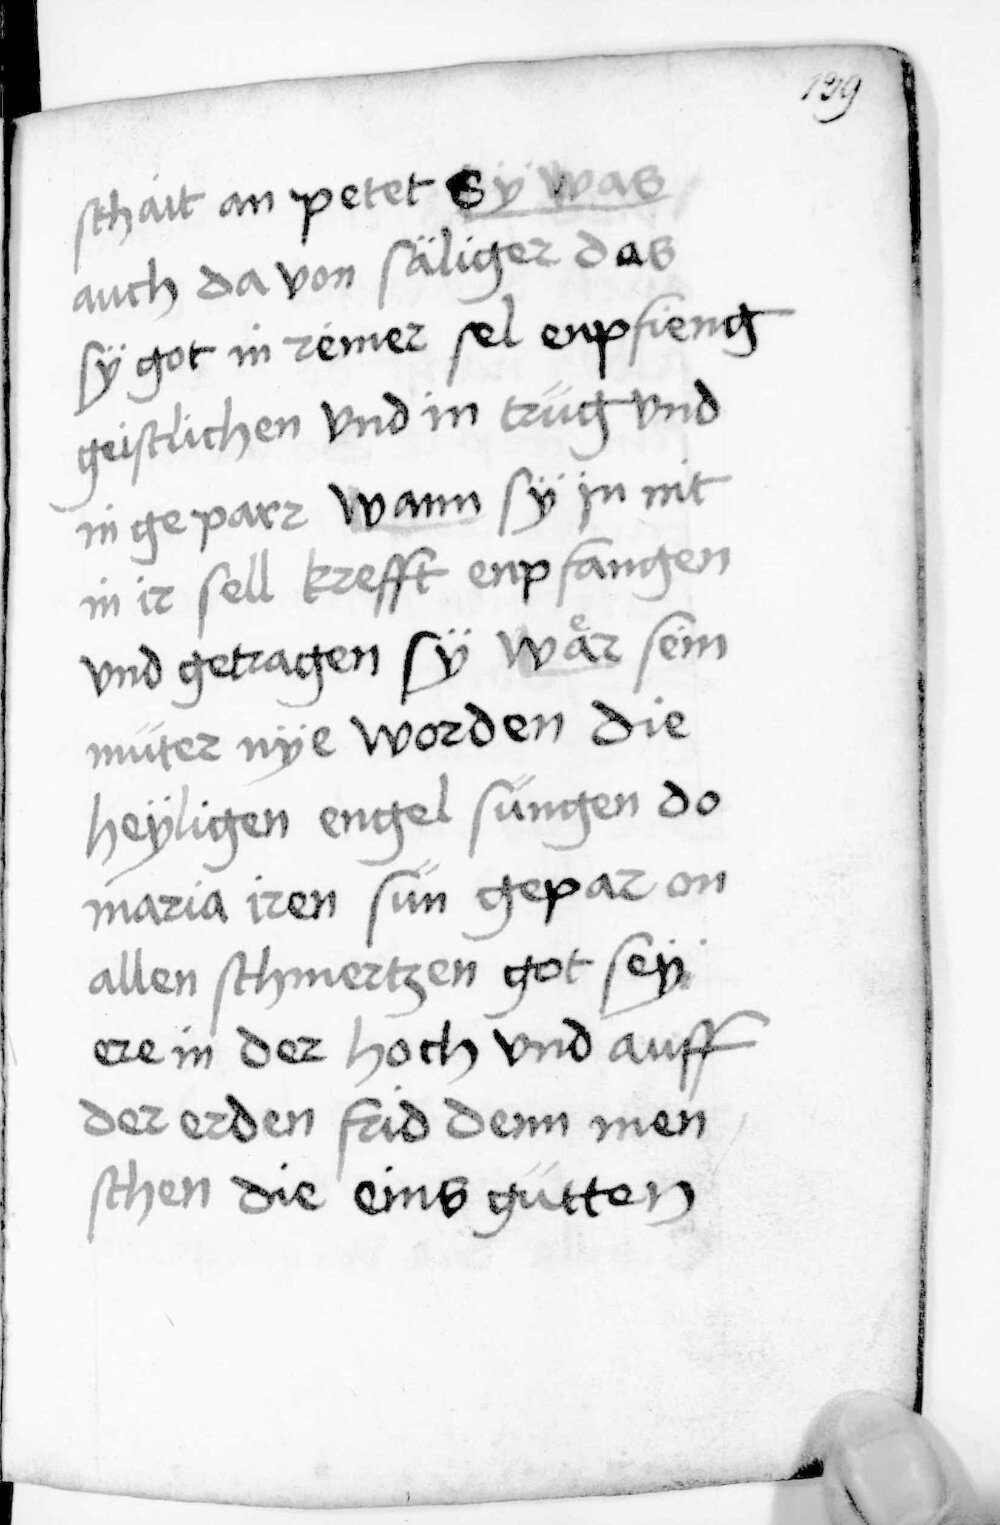 129
schait an petet Sÿ was
auch da von säliger das
sÿ got in reiner sel enpfieng
geistlichen vnd in trüg vnd
in geparr wann sÿ jn nit
in ir sell krefft enpfangen
vnd getragen sÿ wår sein
müter nÿe worden die
heÿligen engel süngen do
maria iren sün gepar on
allen schmertzen got seÿ
ere in der hoch vnd auff
der erden frid denn men
schen die eins gütten